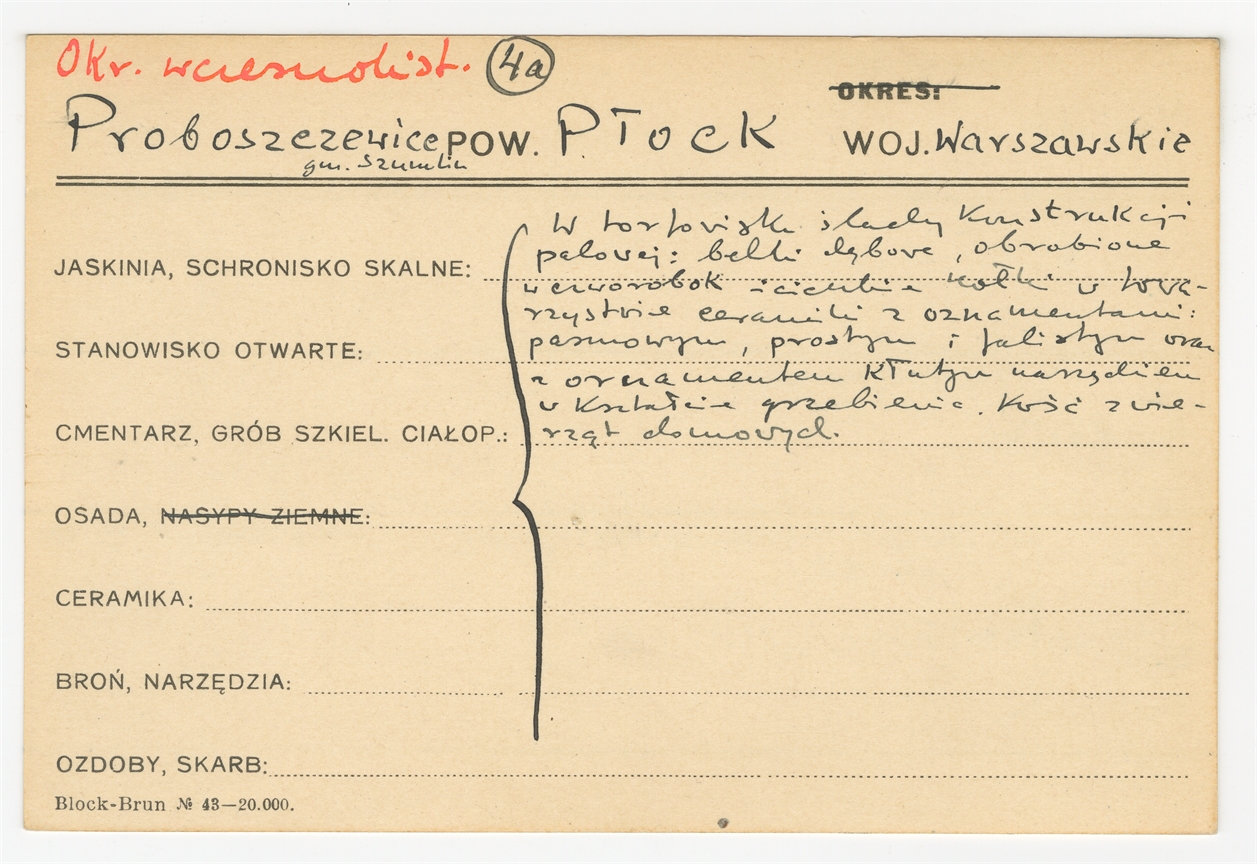 Okr. wczesnohist. 4a
OKRES:
Proboszczewice POW. Płock WOJ. Warszawskie
gm. Szumlin
W torfovisku ślady Konstrukcji
palovej: belki dębove, obrobione
JASKINIA, SCHRONISKO SKALNE:
w czworobok i cienkie kołki w towa-
rzystvie ceramiki z oznamentami:
STANOWISKO OTWARTE:
pasmowym, prostym i falistym oraz
z ornamentem Kłutym narzędziem
w Kształcie grzebienia. Kość zwie-
CMENTARZ, GRÓB SZKIEL. CIAŁOP.:
rząt domowych.
OSADA, NASYPY ZIEMNE:
CERAMIKA:
BROŃ, NARZĘDZIA:
OZDOBY, SKARB:
Block-Brun № 43—20.000.